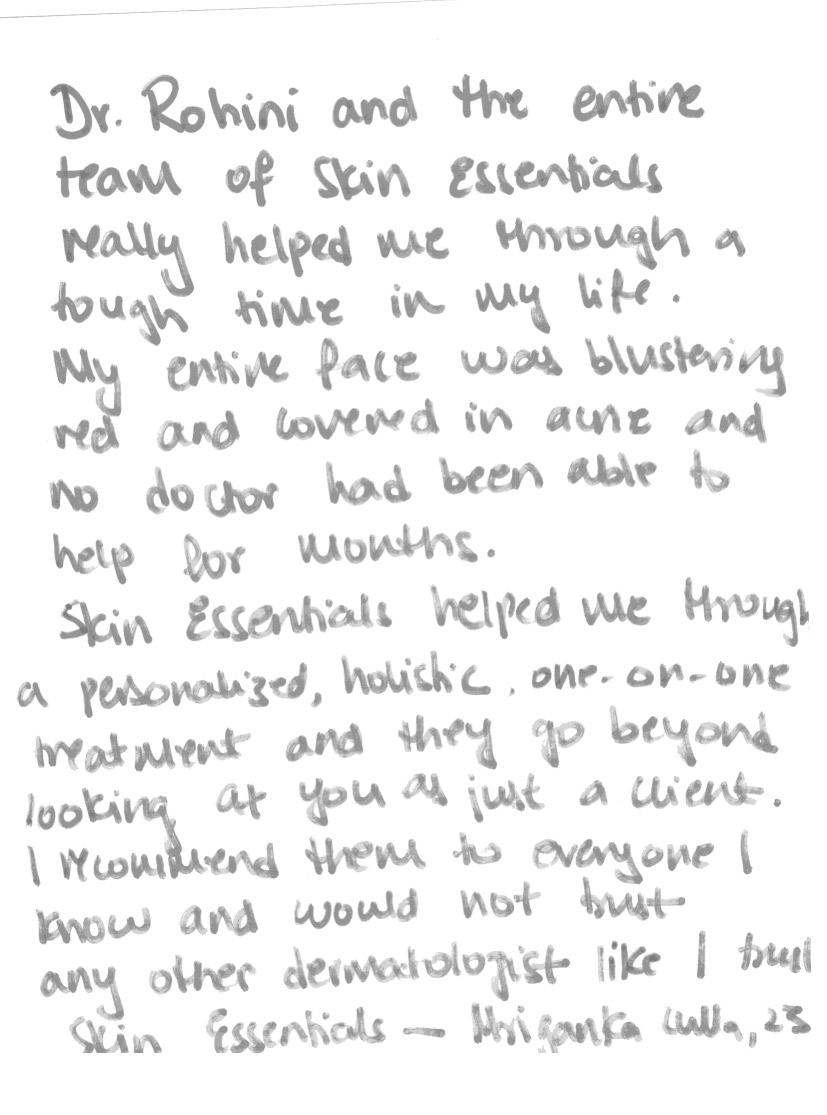 Dr. Rohini and the entire
team of Skin Essentials
really helped me through a
tough time in my life.
My entire face was blustering
red and covered in acne and
no doctor had been able to
help for months.
Skin Essentials helped me through
a personalized, holistic, one-on-one
treatment and they go beyond
looking at you as just a client.
I recommend them to everyone I
know and would not trust
any other dermatologist like I trust
Skin Essentials — Mriganka 23